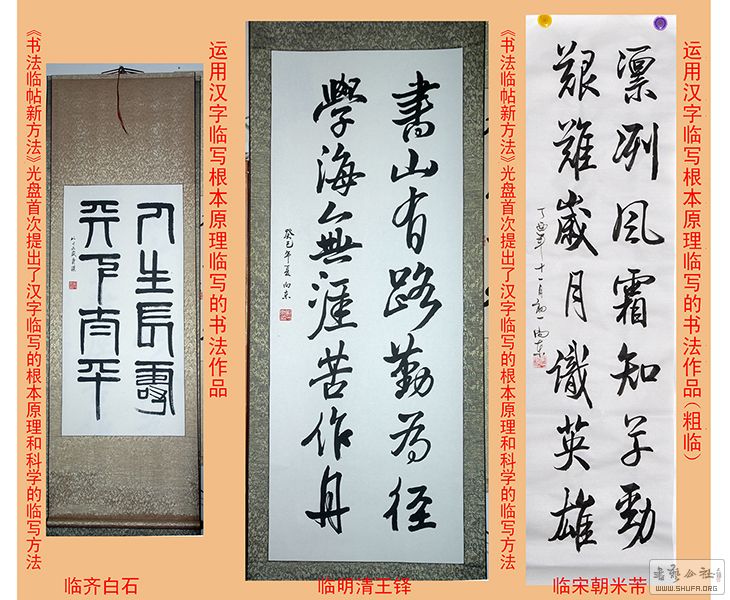 《书法临帖新方法》光盘首次提出了汉字临写的根本原理和科学的临写方法
人生長壽
天下太平
运用汉字临写根本原理临写的书法作品
临齐白石
書山有路勤為徑
學海無涯苦作舟
癸巳年夏向東
临明清王铎
《书法临帖新方法》光盘首次提出了汉字临写的根本原理和科学的临写方法
凜冽風霜知草勁
艱難歲月識英雄
丁酉年十一月初一向東
运用汉字临写根本原理临写的书法作品（粗临）
临宋朝米芾
WWW.SHUFA.ORG